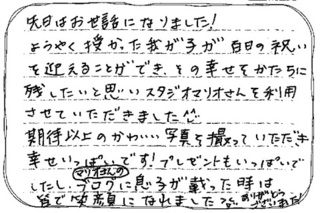 先日はお世話になりました!
ようやく授かった我が子が百日の祝い
を迎えることができ、その幸せをかたちに
残したいと思いスタジオマリオさんを利用
させていただきました^^
期待以上のかわいい写真を撮っていただき
幸せいっぱいです!プレゼントもいっぱいで
したし、マリオさんのブログに息子が載った時は
皆で笑顔になれました♪ ありがとうございました!